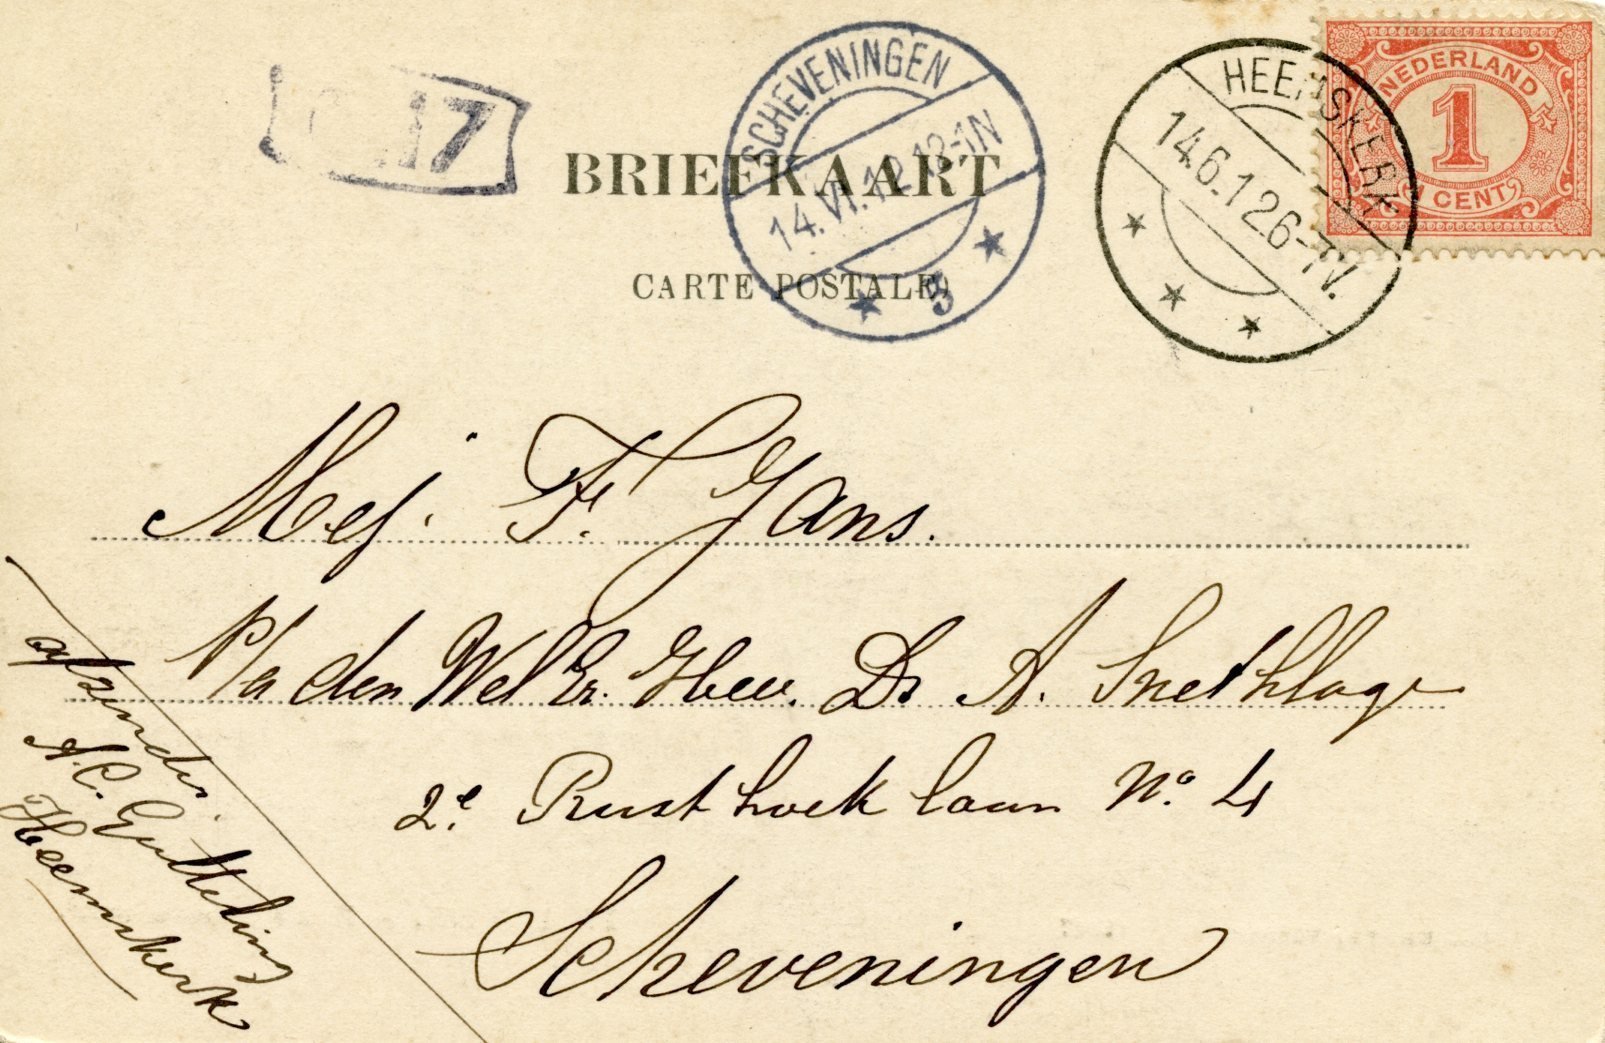 BRIEFKAART
CARTE POSTALE)
SCHEVENINGEN
14.VI.12.12-1N
3
HEEMSKERK
14.6.12 6-7V.
NEDERLAND
1
CENT
17
Mej. F. Jans.
P/a den Wel Er. Heer. Ds A. Snethlage
2e Rusthoek laan No. 4
Scheveningen
afzender.
A.C. Gutteling
Heemskerk